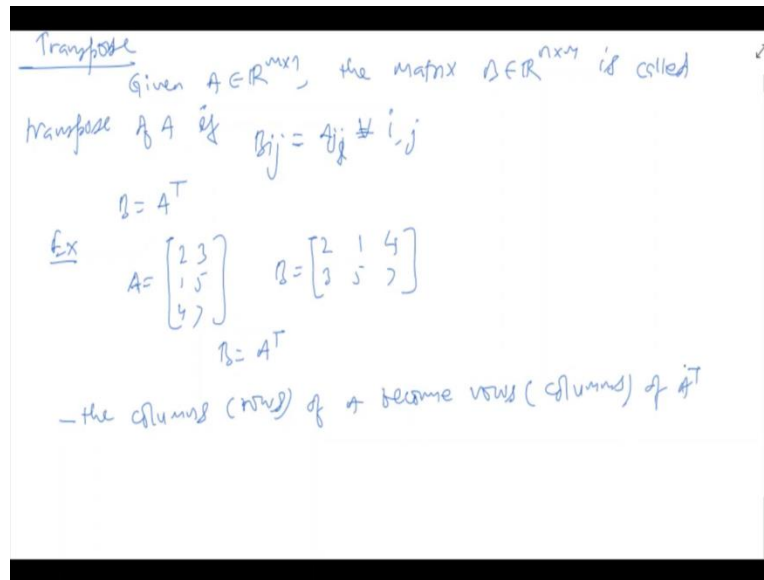 Transpose
Given A ∈ ℝ^{m×n}, the matrix B ∈ ℝ^{n×m} is called
transpose of A if B_{ij} = A_{ji} ∀ i, j
B = A^T
Ex
A = [2 3; 1 5; 4 7] B = [2 1 4; 3 5 7]
B = A^T
– the columns (rows) of A become rows (columns) of A^T